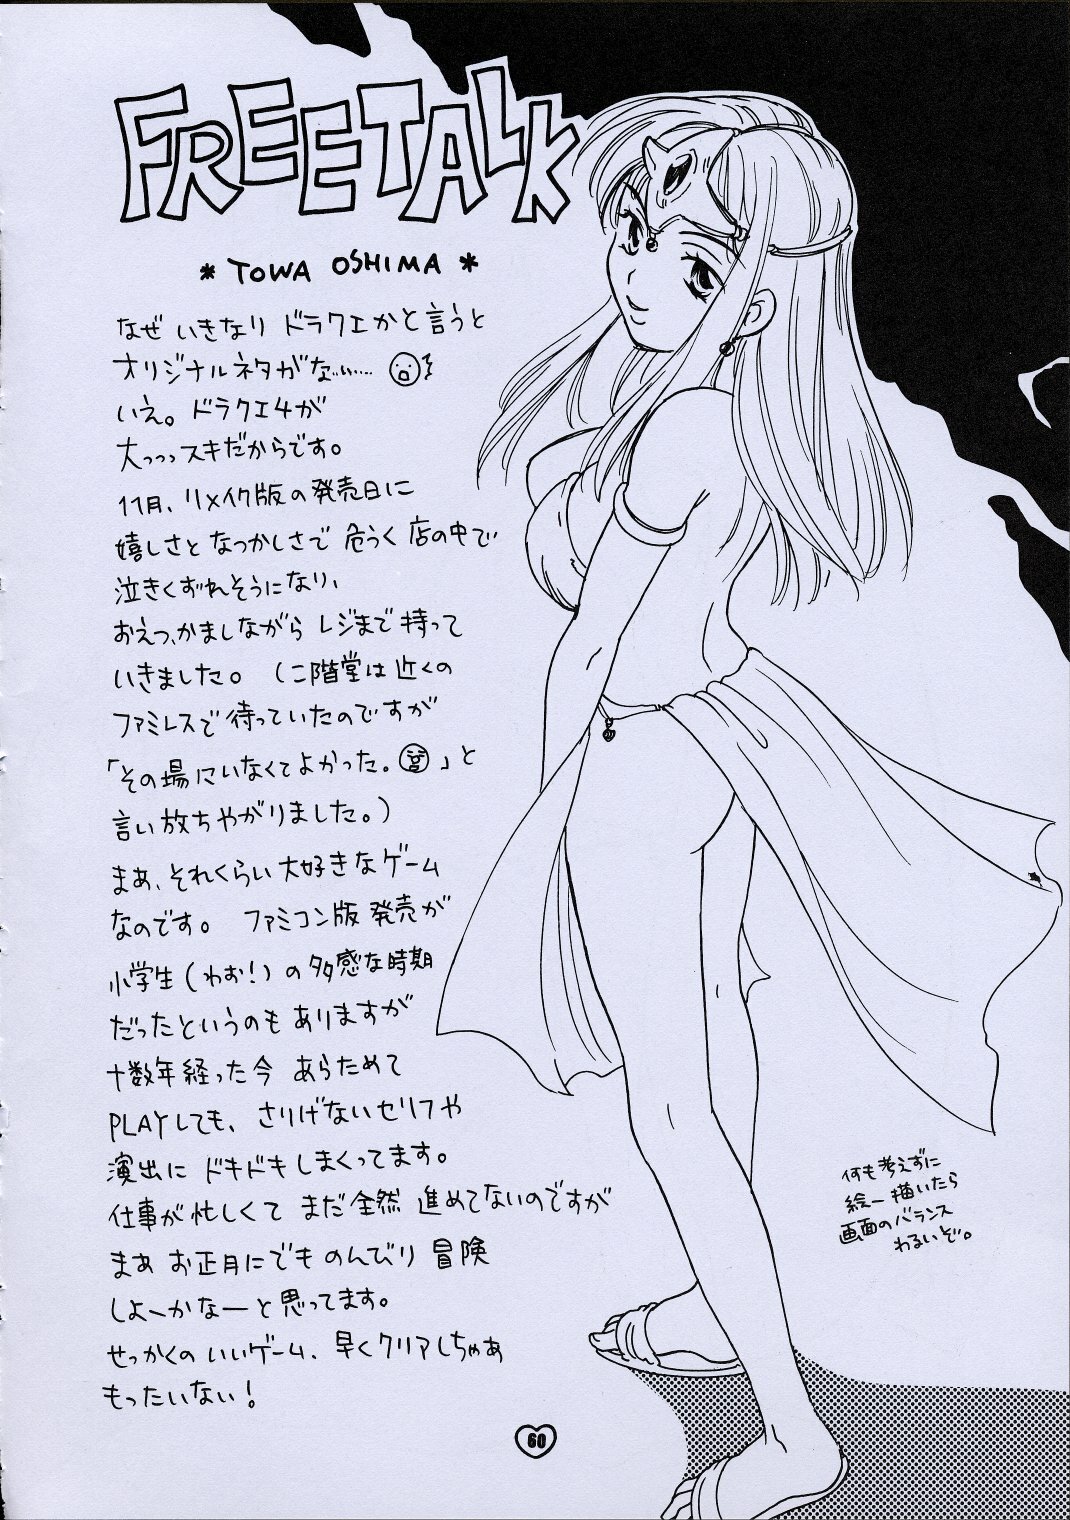 FREE TALK
* TOWA OSHIMA *
なぜ いきなり ドラクエかと言うと
オリジナルネタがなぃぃ……
いえ。ドラクエ4が
大っっっスキだからです。
11月、リメイク版の発売日に
嬉しさと なつかしさで 危うく 店の中で
泣きくずれそうになり、
おえつ、かましながら レジまで 持って
いきました。 (二階堂は近くの
ファミレスで待っていたのですが
「その場にいなくてよかった。」と
言い放ちやがりました。)
まぁ、それくらい大好きなゲーム
なのです。 ファミコン版 発売が
小学生(わお!)の多感な時期
だったというのも ありますが
十数年経った今 あらためて
PLAYしても、さりげないセリフや
演出に ドキドキしまくってます。
仕事が忙しくて まだ全然 進めてないのですが
まぁ お正月にでも のんびり 冒険
しよーかなーと思ってます。
せっかくの いいゲーム、早くクリアしちゃあ
もったいない!
何も考えずに
絵ー描いたら
画面のバランス
わるいぞ。
60